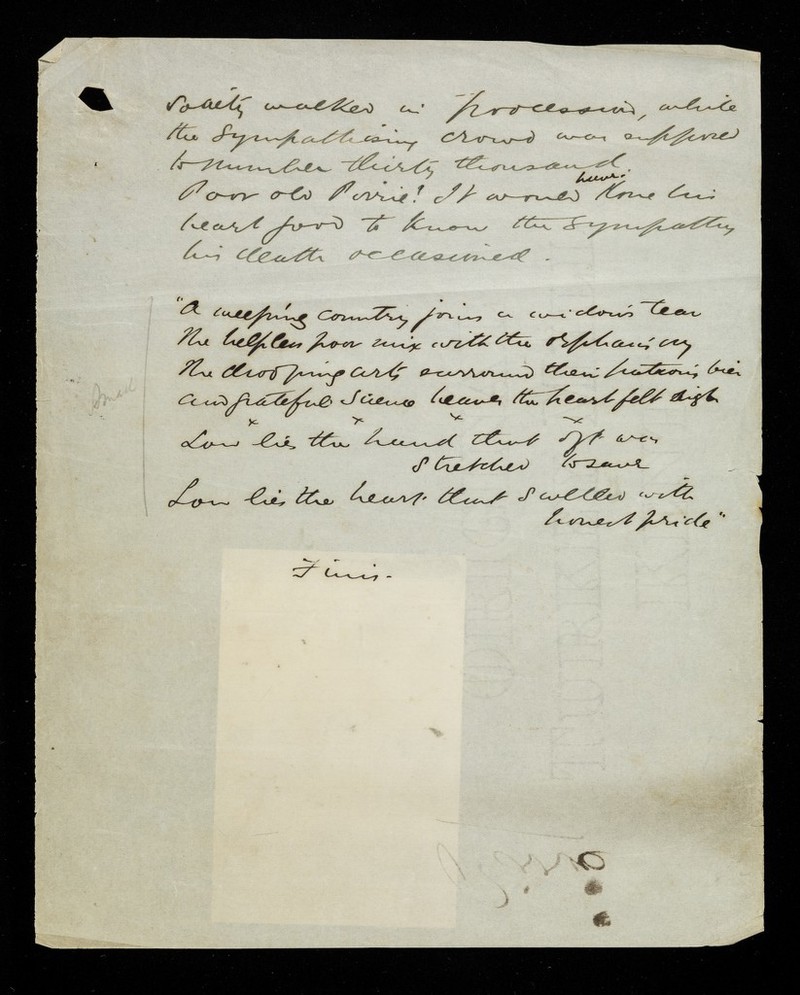 Society walked in procession, while
the Sympathising crowd was supposed
to number thirty thousand.
Poor old Pirrie! It would have done his
heart good to know the Sympathy
his death occasioned.
"A weeping country joins a widow's tear
The helpless poor mix with the orphan's cry
The drooping arts surround their patron's bier
and grateful Science heaves the heart felt sigh
x x x x
Low lies the hand that oft was
Stretched to save
Low lies the heart that swelled with
honest pride"
Finis.
Small